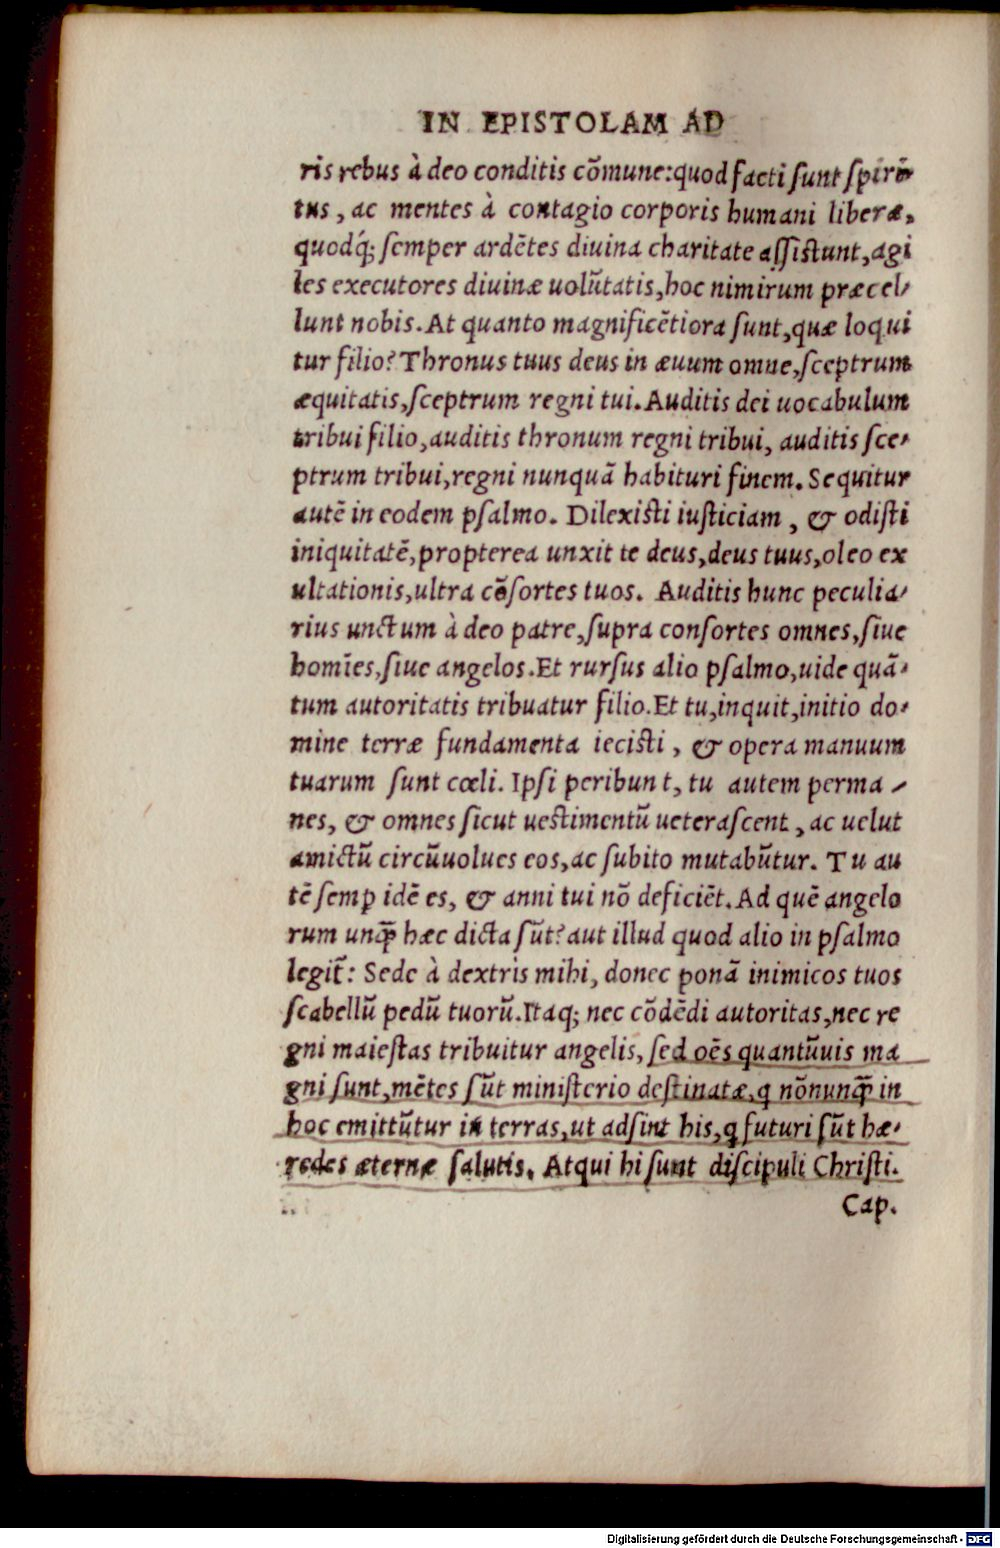 IN EPISTOLAM AD
ris rebus à deo conditis cõmune: quod facti sunt spiri-
tus, ac mentes à contagio corporis humani liberæ,
quodq́; semper ardẽtes diuina charitate assistunt, agi
les executores diuinæ uolũtatis, hoc nimirum præcel-
lunt nobis. At quanto magnificẽtiora sunt, quæ loqui
tur filio? Thronus tuus deus in æuum omne, sceptrum
æquitatis, sceptrum regni tui. Auditis dei uocabulum
tribui filio, auditis thronum regni tribui, auditis sce-
ptrum tribui, regni nunquã habituri finem. Sequitur
autẽ in eodem psalmo. Dilexisti iusticiam, & odisti
iniquitatẽ, propterea unxit te deus, deus tuus, oleo ex
ultationis, ultra cõsortes tuos. Auditis hunc peculia-
rius unctum à deo patre, supra consortes omnes, siue
homĩes, siue angelos. Et rursus alio psalmo, uide quã-
tum autoritatis tribuatur filio. Et tu, inquit, initio do-
mine terræ fundamenta iecisti, & opera manuum
tuarum sunt cœli. Ipsi peribunt, tu autem perma-
nes, & omnes sicut uestimentũ ueterascent, ac uelut
amictũ circũuolues eos, ac subito mutabũtur. Tu au
tẽ semꝑ idẽ es, & anni tui nõ deficiẽt. Ad quẽ angelo
rum unꝗ̃ hæc dicta sũt? aut illud quod alio in psalmo
legit̃: Sede à dextris mihi, donec ponã inimicos tuos
scabellũ pedũ tuorũ. Itaq; nec cõdẽdi autoritas, nec re
gni maiestas tribuitur angelis, sed oẽs quantũuis ma
gni sunt, mẽtes sũt ministerio destinatæ, ꝗ nõnunꝗ̃ in
hoc emittũtur in terras, ut adsint his, ꝗ futuri sũt hæ-
redes æternæ salutis. Atqui hi sunt discipuli Christi.
Cap.
Digitalisierung gefördert durch die Deutsche Forschungsgemeinschaft - DFG